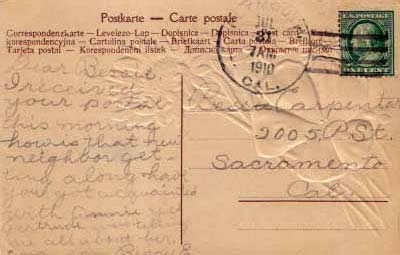 Postkarte — Carte postale
Correspondenzkarte — Levelezo-Lap — Dopisnice — Dopisnica — Post card —
korespondencyjna — Cartolina postale — Briefkaart — Carta postal — Brefkort
Tarjeta postal — Korespondenčni listek —
JUL
7 AM
1910
CAL.
U.S. POSTAGE
Dear Bessie
I received
your postal
this morning
how is that new
neighbor get-
ing along have
you got acquainted
with yet
Gertrude
me all about her
Bessie Carpenter
2005 P St.
Sacramento
Calif